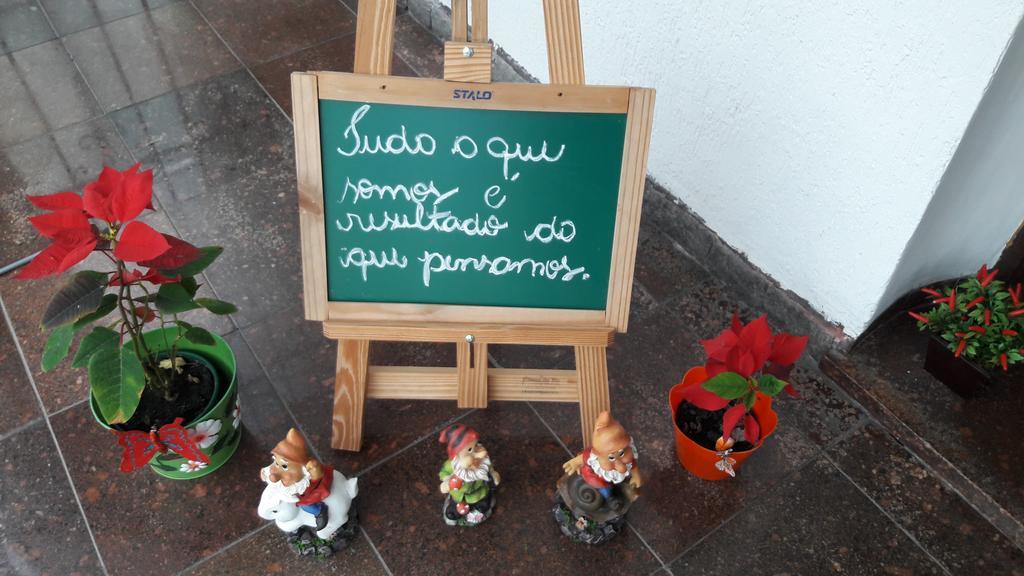 STALO
Tudo o que
somos é
resultado do
que pensamos.